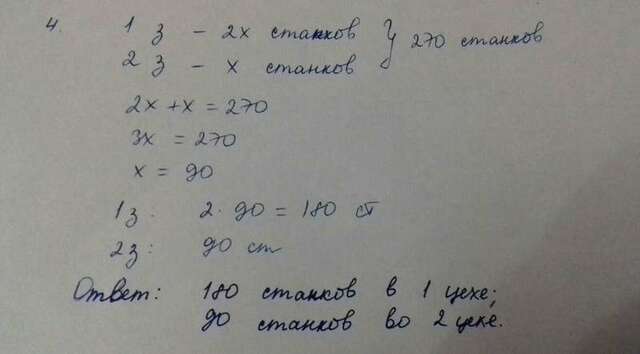 4. 1 з - 2х станков } 270 станков
2 з - х станков
2х + х = 270
3х = 270
х = 90
1з. 2 · 90 = 180 ст
2з: 90 ст
Ответ: 180 станков в 1 цехе;
90 станков во 2 цехе.